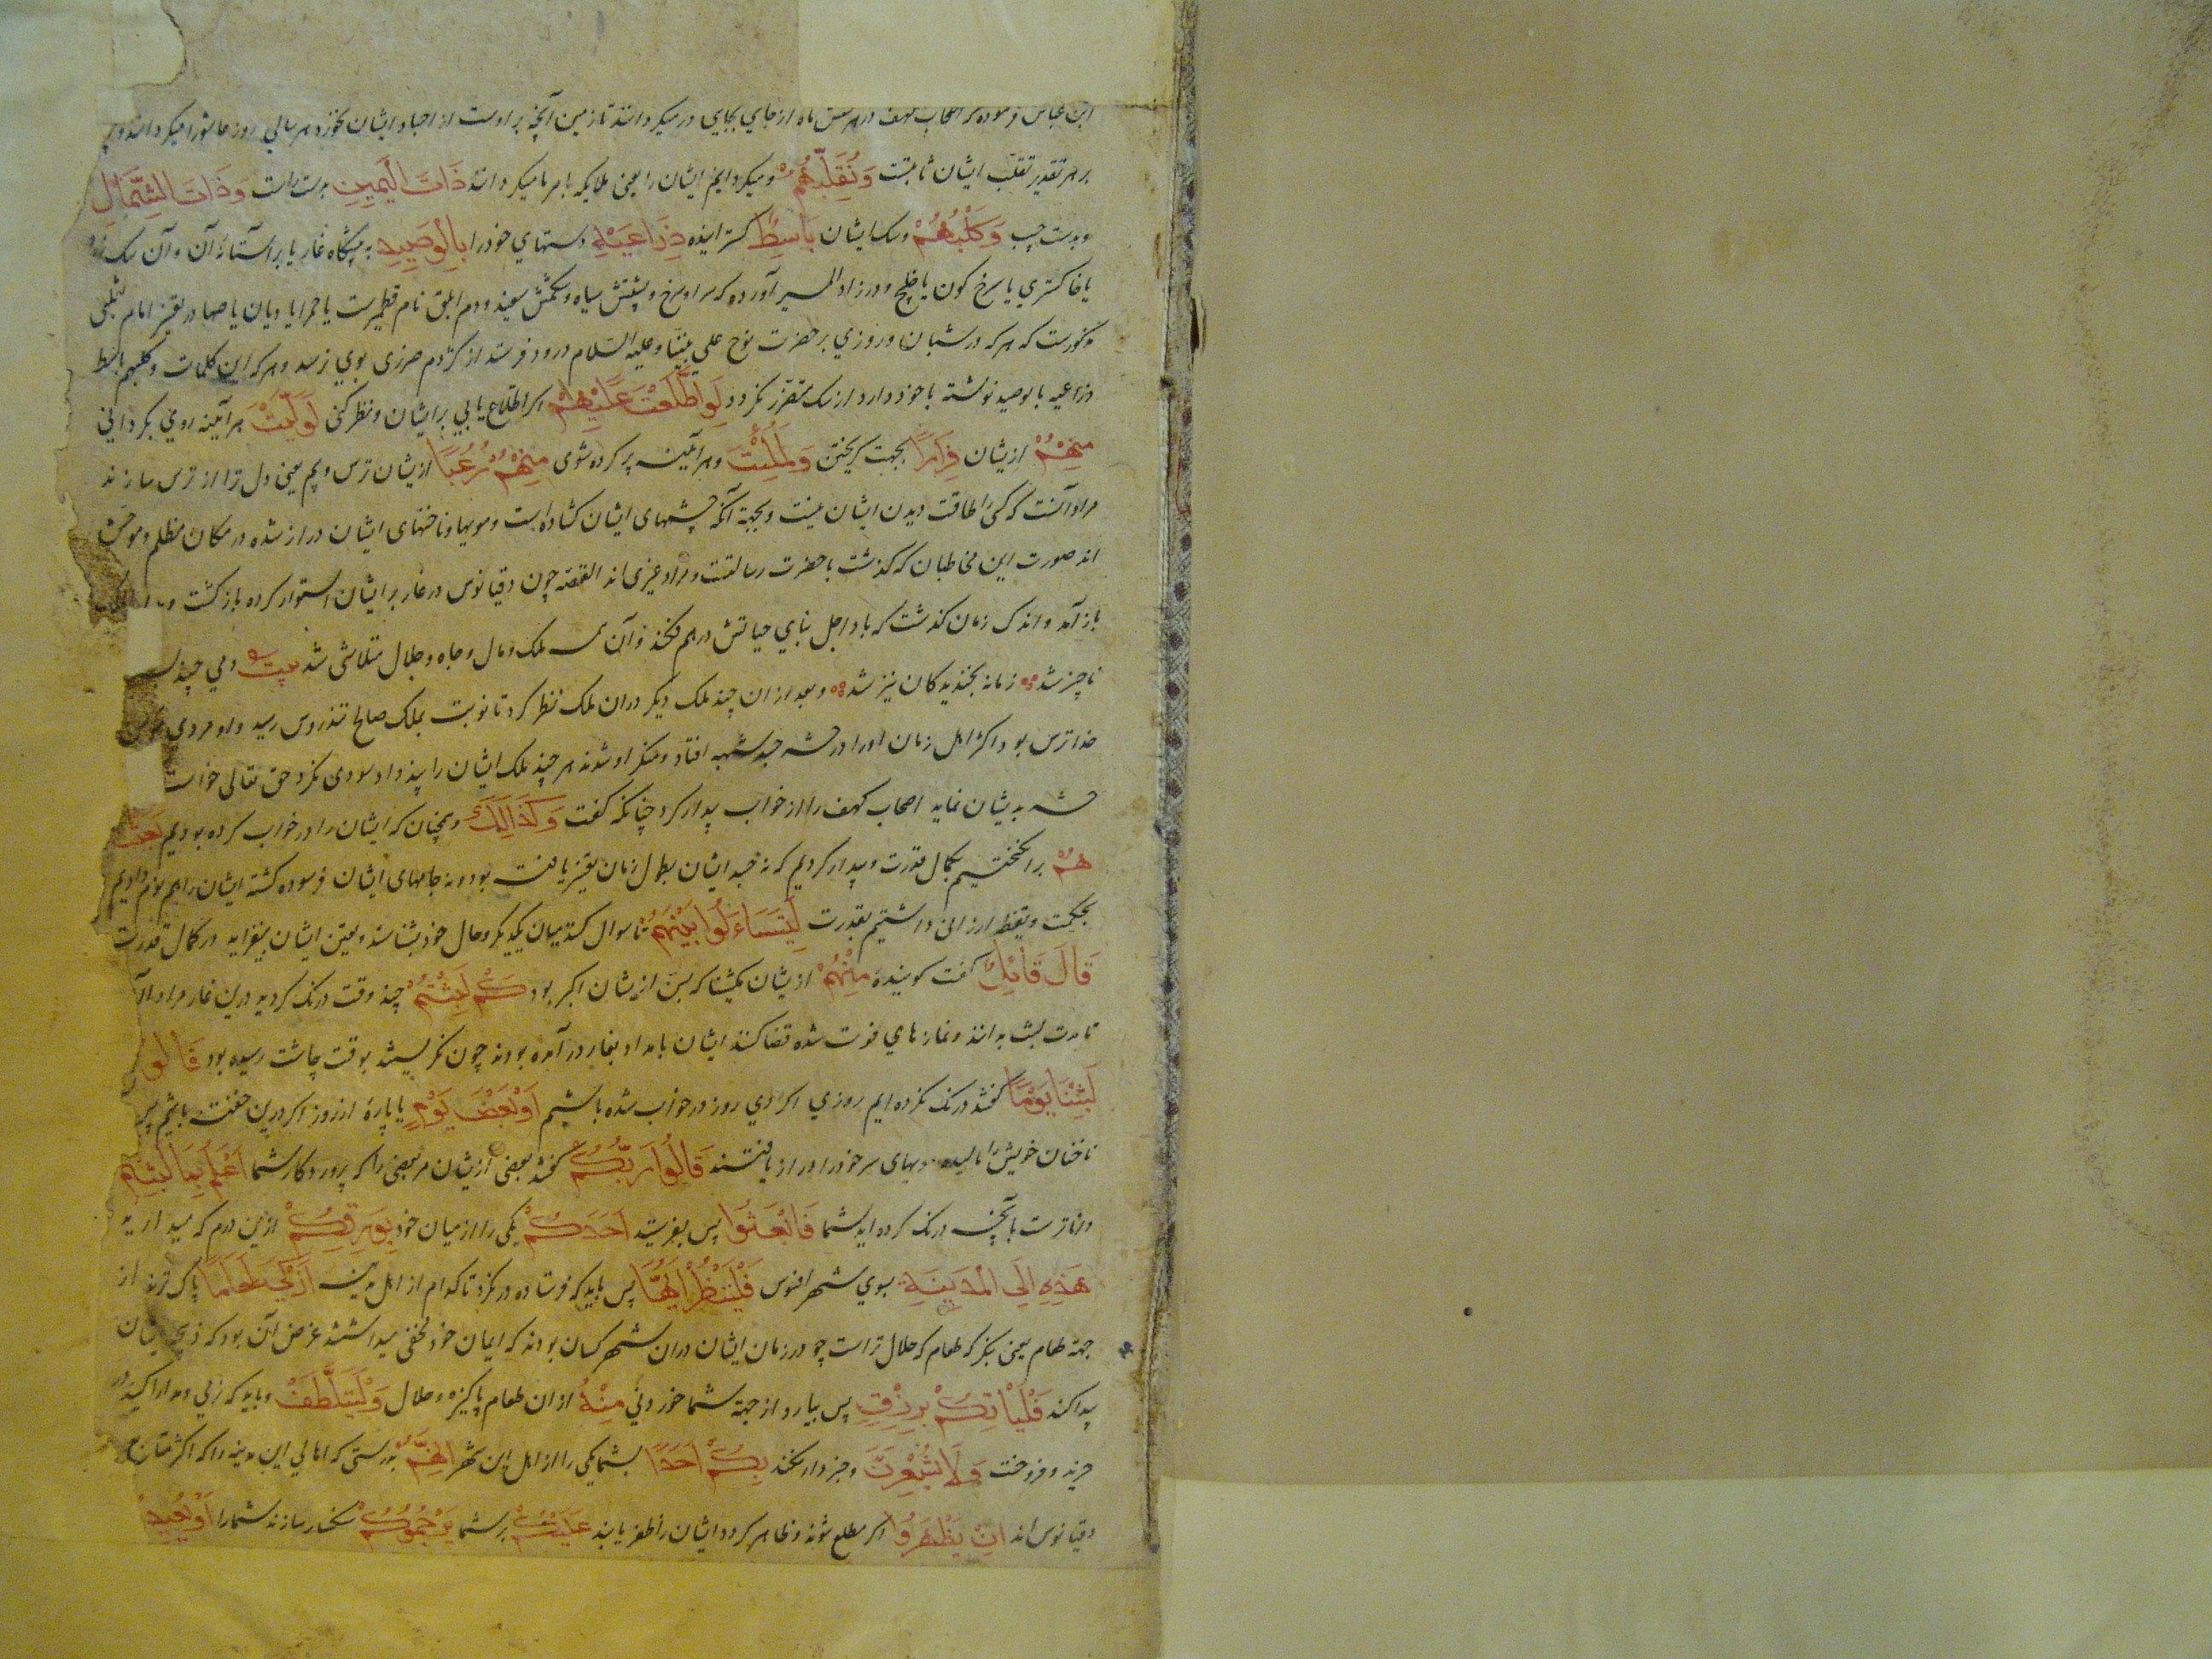 ابن عباس فرموده که اصحاب کهف در هر شش ماه از جای بجایی در میکردانند تا زمین آنچه بر اوست از اجساد ایشان نخورد هر سالی روز عاشورا میکردانند و
بر هر تقدیر تقلب ایشان ثابتست وَنُقَلِّبُهُمْ و میکردانیم ایشان را یعنی ملایکه بامر ما میکردانند ذَاتَ الْيَمِينِ بدست راست وَذَاتَ الشِّمَالِ
و بدست چپ وَكَلْبُهُمْ و سک ایشان بَاسِطٌ کسترانیده ذِرَاعَيْهِ دستهای خود را بِالْوَصِيدِ به پیشگاه غار یا بر آستانه آن و آن سک
یا خاکستری یا سرخ کون یا خلنج و در زاد المسیر آورده که سر او سرخ و پشتش سیاه و شکمش سفید و دم ابلق نام قطمیرست یا حمرا یا دیان یا صها در تفسیر امام ثعلبی
مذکورست که هر که در شبان و روزی بر حضرت نوح علی نبینا و علیه السلام درود فرستد از کژدم ضرری بوی نرسد و هر که این کلمات وکلبهم باسط
ذراعیه بالوصید نوشته با خود دارد از سک متضرر نکردد لَوِ اطَّلَعْتَ عَلَيْهِمْ اکر اطلاع یابی بر ایشان و نظر کنی لَوَلَّيْتَ هر آینه روی بکردانی
مِنْهُمْ ازیشان فِرَارًا بجهت کریختن وَلَمُلِئْتَ و هر آینه پر کرده شوی مِنْهُمْ رُعْبًا ازیشان ترس و بیم یعنی دل ترا از ترس سازند
مراد آنست که کسی را طاقت دیدن ایشان نیست و بجهة آنکه چشمهای ایشان کشاده است و مویها و ناخنهای ایشان دراز شده در مکان مظلم و موحش
اند صورت این مخاطبان که کذشت با حضرت رسالتست و مراد غیری اند القصه چون دقیانوس در غار بر ایشان استوار کرده باز کشت و
باز آمد و اندک زمان کذشت که باد اجل بنای حیاتش درهم فکند و آن ملک و مال و جاه و جلال متلاشی شد بیت دمی چند
ناچیز شد زمانه بخندید کان نیز شد و بعد از ان چند ملک دیکر دران ملک نظر کرد تا نوبت بملک صالح تندروس رسید و او مردی مؤمن
خدا ترس بود اکثر اهل زمان او را در حشر جسد شبهه افتاد و منکر او شدند هر چند ملک ایشان را پند داد سودی نکرد حق تعالی خواست
حشر به یشان نماید اصحاب کهف را از خواب بیدار کرد چنانکه کفت وَكَذَلِكَ و همچنان که ایشان را در خواب کرده بودیم بَعَثْنَا
هُمْ برانکیختیم بکمال قدرت و بیدار کردیم که نه جسد ایشان بطول زمان تغیر یافته بود و نه جامهای ایشان فرسوده کشته ایشان را هم نوم دادیم
بحکمت و تیقظ ارزانی داشتیم بقدرت لِيَتَسَاءَلُوا بَيْنَهُمْ تا سوال کنند میان یکدیکر و حال خود بشناسند و یقین ایشان بیفزاید در کمال قدرت
قَالَ قَائِلٌ کفت کوینده مِنْهُمْ ازیشان مکسلینا که بسن ازیشان اکبر بود كَمْ لَبِثْتُمْ چند وقت درنک کردید درین غار مراد آن
تا مدت لبث بدانند و نمازهای فوت شده قضا کنند ایشان بامداد بغار در آمده بودند چون نکریستند بوقت چاشت رسیده بود قَالُوا
لَبِثْنَا يَوْمًا کفتند درنک کرده ایم روزی اکر دی روز در خواب شده باشیم أَوْ بَعْضَ يَوْمٍ یا پاره از روز اکر درین خفته باشیم پس
ناخنان خویش را بالیده مویهای سر خود را دراز یافتند قَالُوا رَبُّكُمْ کفتند بعضی ازیشان مر بعضی را که پروردکار شما أَعْلَمُ بِمَا لَبِثْتُمْ
داناترست بآنچه درنک کرده اید شما فَابْعَثُوا پس بفرستید أَحَدَكُمْ یکی را از میان خود بِوَرِقِكُمْ ازین درم که میدارید
هَذِهِ إِلَى الْمَدِينَةِ بسوی شهر افسوس فَلْيَنْظُرْ أَيُّهَا پس باید که فرستاده در نکرد تا کدام از اهل مدینه أَزْكَى طَعَامًا پاک ترند از
جهة طعام یعنی بنکر که طعام که حلال تر است چه در زمان ایشان دران شهر کسان بودند که ایمان خود مخفی میداشتند غرض آن بود که ذبیحه ایشان
پیدا کند فَلْيَأْتِكُمْ بِرِزْقٍ پس بیارد از جهة شما خوردنی مِنْهُ ازان طعام پاکیزه و حلال وَلْيَتَلَطَّفْ و باید که نرمی و مدارا کند در
خرید و فروخت وَلَا يُشْعِرَنَّ و خبردار نکند بِكُمْ أَحَدًا بشما یکی را از اهل این شهر إِنَّهُمْ بدرستی که اهالی این مدینه را که اکثر متابع
دقیانوس اند إِنْ يَظْهَرُوا اکر مطلع شوند و ظاهر کردد ایشان را ظفر یابند عَلَيْكُمْ بر شما يَرْجُمُوكُمْ سنکسار سازند شما را أَوْ يُعِيدُ